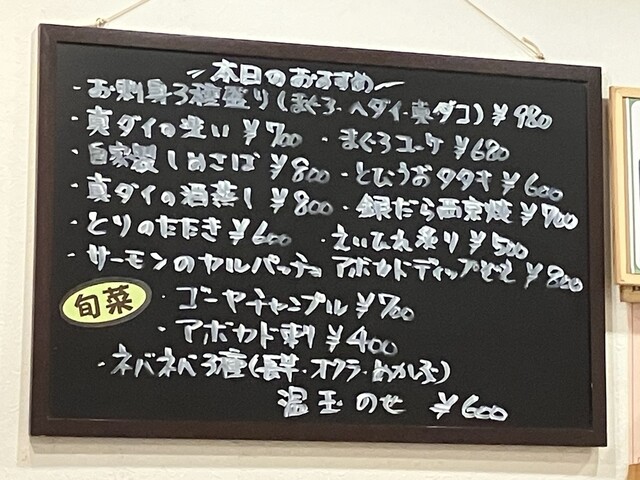 本日のおすすめ
・お刺身3種盛り(まぐろ・ヘダイ・真ダコ)¥980
・真ダイの洗い ¥700 ・まぐろユッケ ¥680
・自家製しめさば ¥800 ・とびうおタタキ ¥600
・真ダイの酒蒸し ¥800 ・銀だら西京焼 ¥700
・とりのたたき ¥600 ・えいひれ炙り ¥500
・サーモンのカルパッチョ アボカドディップ ¥800
旬菜
・ゴーヤチャンプル ¥700
・アボカド刺 ¥400
・ネバネバ3種(長芋・オクラ・めかぶ)
温玉のせ ¥600